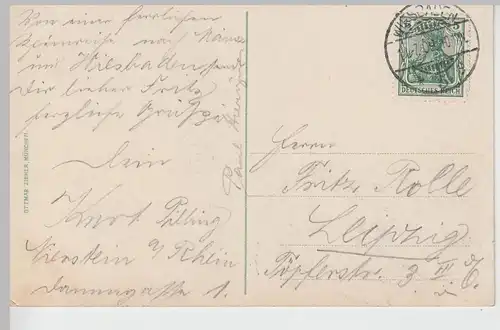 Von einer herrlichen
Rheinreise nach Mainz
und Wiesbaden sendet
Dir lieber Fritz
herzliche Grüße
Dein
Kurt Pilling
Nierstein a/Rhein
Dammgasse 1.
Paul
OTTMAR ZIEHER, MÜNCHEN
WIESBADEN
DEUTSCHES REICH
Herrn
Fritz Rolle
Leipzig
Töpferstr. 3 III